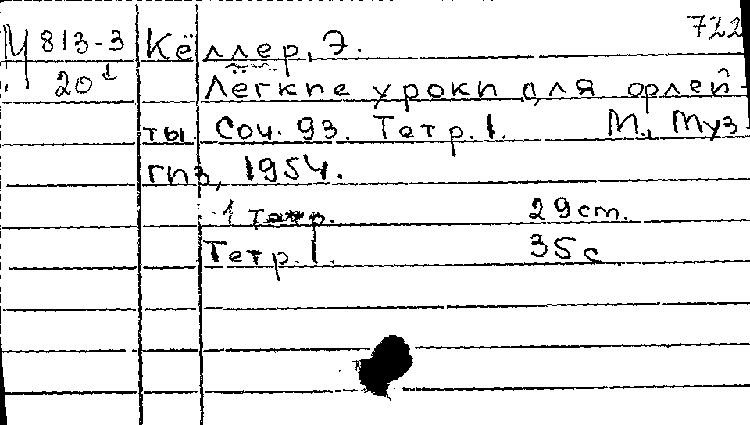 722
Ц 813-3
20¹
Кёллер, Э.
Лёгкие уроки для орлей-
ты. Соч. 93. Тетр. 1. М., Муз
гиз, 1954.
1 тетр. 29 cm.
Тетр. 1. 35 с